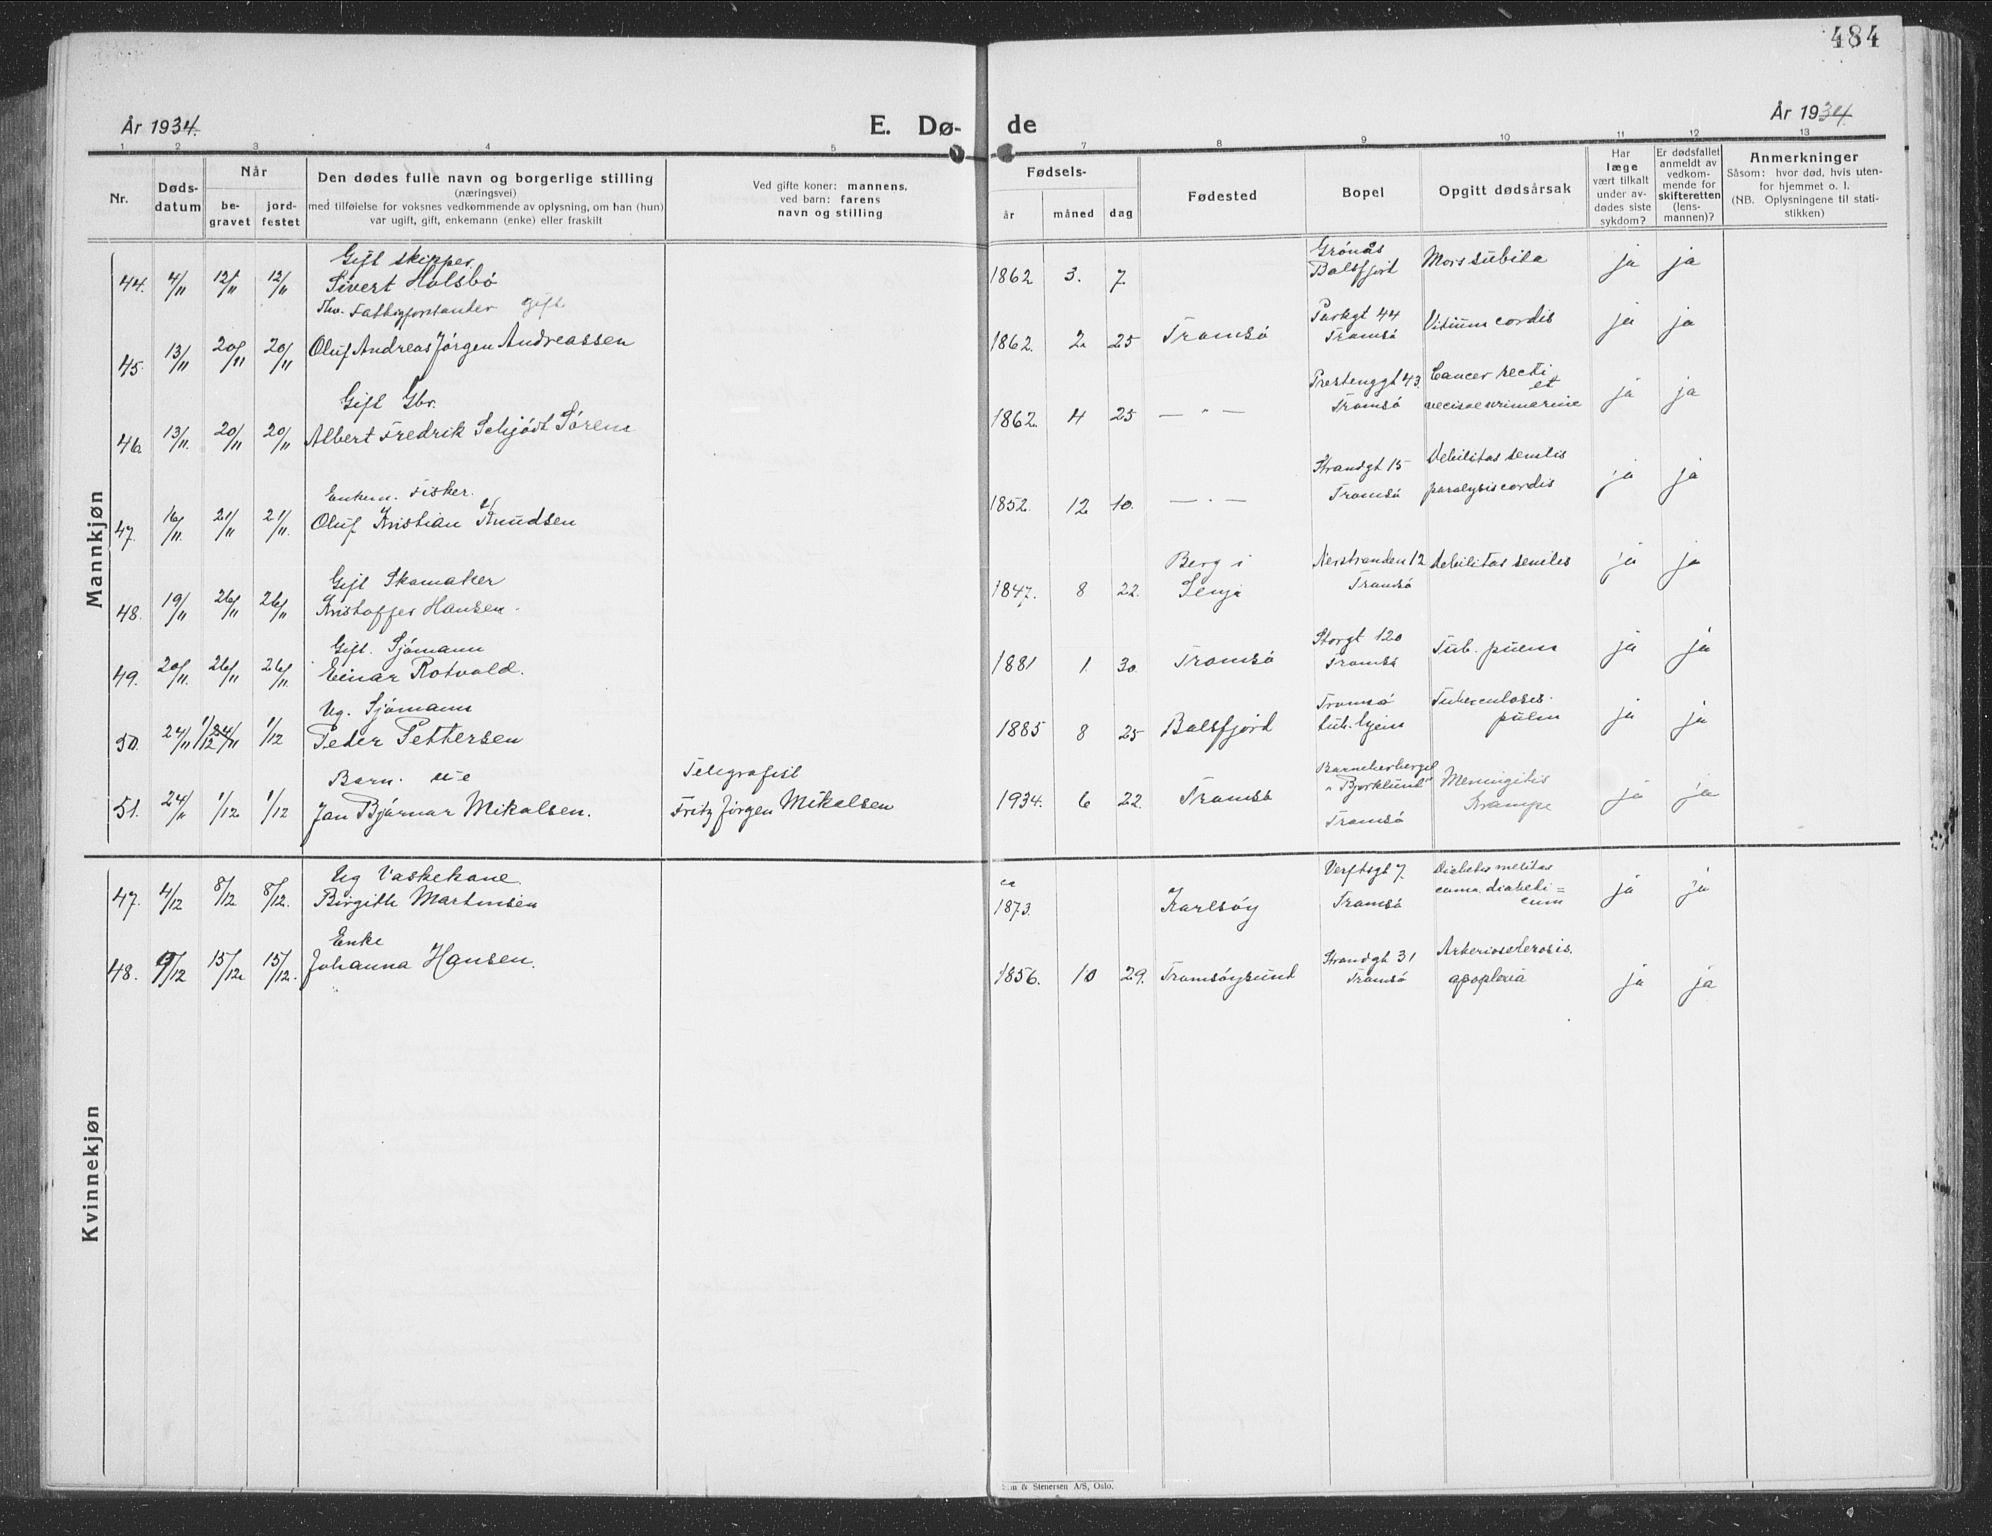 484
År 1934.
E. Dø-
de
År 1934.
1 2 3 4 5 7 8 9 10 11 12 13
Nr.
Døds-
datum
Når
be-
gravet
jord-
festet
Den dødes fulle navn og borgerlige stilling
(næringsvei)
med tilføielse for voksnes vedkommende av oplysning, om han (hun)
var ugift, gift, enkemann (enke) eller fraskilt
Ved gifte koner: mannens,
ved barn: farens
navn og stilling
Fødsels-
år måned dag
Fødested
Bopel
Opgitt dødsårsak
Har
læge
vært tilkalt
under av-
dødes siste
sykdom?
Er dødsfallet
anmeldt av
vedkom-
mende for
skifteretten
(lens-
mannen)?
Anmerkninger
Såsom: hvor død, hvis uten-
for hjemmet o. l.
(NB. Oplysningene til stati-
stikken)
Mannkjøn
Gift skipper
44. 4/11 12/11 12/11 Sivert Holsbø 1862 3. 7. Grønås Balsfjort Mors subita ja ja
Fattigforstander Gift
45. 13/11 20/11 20/11 Oluf Andreas Jørgen Andreassen 1862. 2. 25 Tromsø Parkgt 44 Tromsø Vitium cordis ja ja
Gift Gbr.
46. 13/11. 20/11 20/11 Albert Fredrik Schjødt Sørens 1862. 4 25 — " — Prestenggt 43. Tromsø Cancer recti et ja ja
Enkem. Fisker.
47. 16/11. 21/11 21/11. Oluf Kristian Knudsen 1852. 12 10. — " — Strandgt 15 Tromsø Debilitas senilis paralysis cordis ja ja
Gift Skomaker
48. 19/11 26/11 26/11 Kristoffer Hansen. 1847. 8 22. Berg i Senja Nerstranden 12 Tromsø Debilitas senilis ja ja
Gift. Sjømann
49. 20/11. 26/11 26/11. Einar Rotvold. 1881 1. 30. Tromsø Storgt 120 Tromsø Tub. pulm ja ja
Ug. Sjømann
50. 24/11 1/12 24/11 1/12 Peder Pettersen 1885 8 25 Balsfjord Tromsø tub. hjem Tuberculosis pulm ja ja
Barn. Telegrafist
51. 24/11 1/12 1/12 Jan Bjørnar Mikalsen. Fritz Jørgen Mikalsen 1934. 6 22. Tromsø Barneherberget "Bjorklund" Tromsø Meningitis Krampe ja ja
Kvinnekjøn
Ug Vaskekone
47. 4/12 8/12 8/12. Birgith Martinsen ca 1873. Karlsøy Verftsgt 7. Tromsø Diabetes melitus coma diabeti= cum ja ja
Enke
48. 9/12 15/12 15/12. Johanna Hansen. 1856. 10 29. Tromsøysund Strandgt 31 Tromsø Arteriosclerosis. apoplexia ja ja
& Stenersen A/S, Oslo.